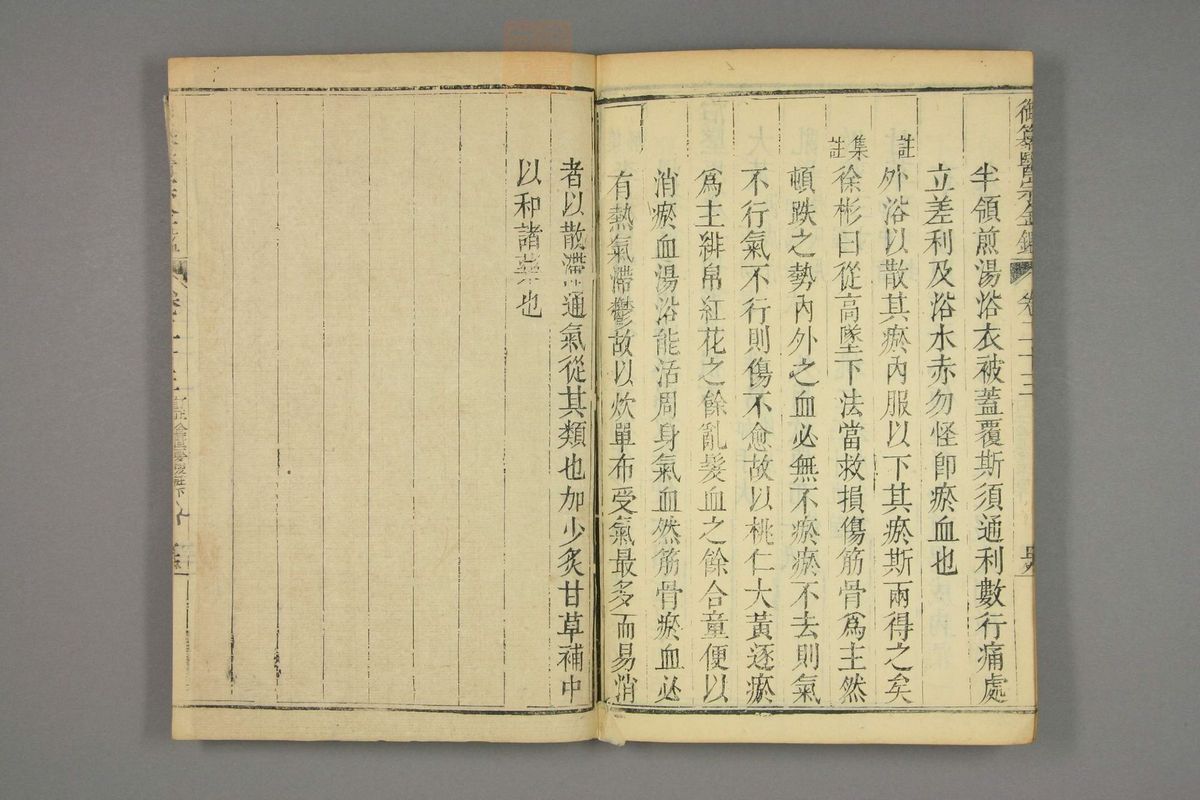 御纂醫宗金鑑 卷二十三
半領煎湯浴衣被蓋覆斯須通利數行痛處
立差利及浴水赤勿怪卽瘀血也
註外浴以散其瘀內服以下其瘀斯兩得之矣
集註徐彬曰從高墜下法當救損傷筋骨爲主然
頓跌之勢內外之血必無不瘀瘀不去則氣
不行氣不行則傷不愈故以桃仁大黃逐瘀
爲主緋帛紅花之餘亂髮血之餘合童便以
消瘀血湯浴能活周身氣血然筋骨瘀血必
有熱氣滯鬱故以炊單布受氣最多而易消
者以散滯通氣從其類也加少炙甘草補中
以和諸藥也